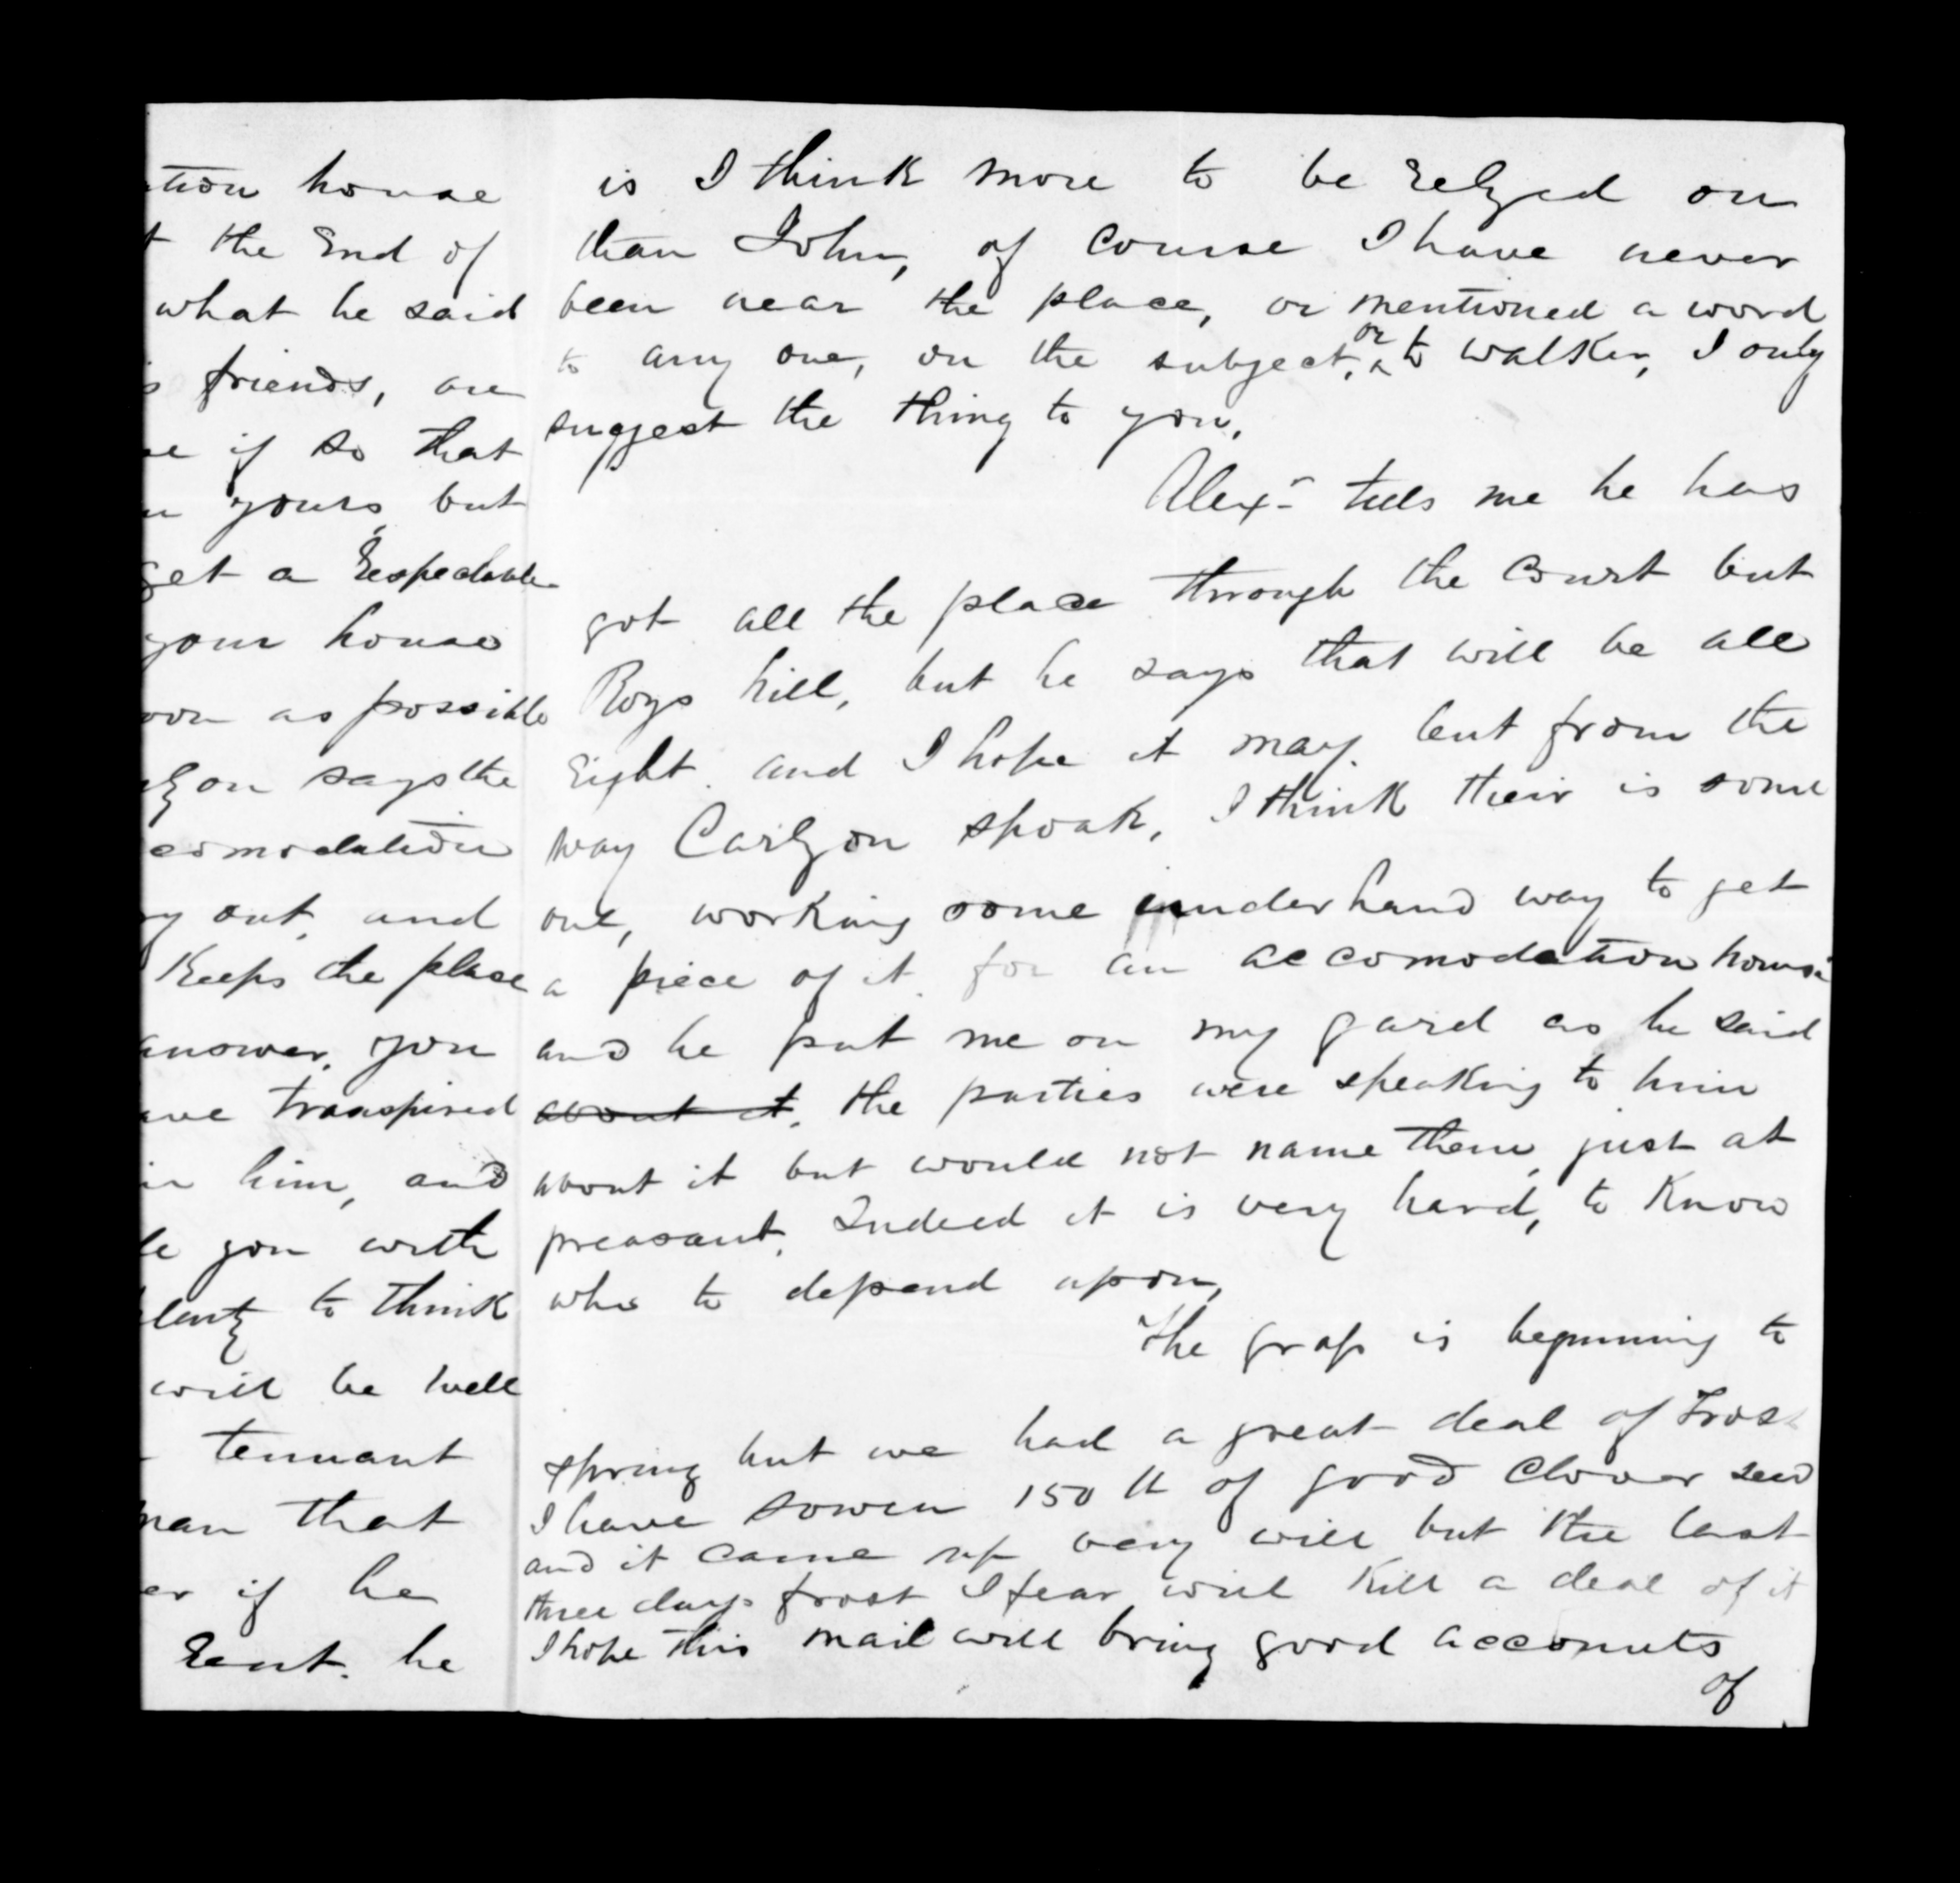 tion house
t the End of
what he said
s friends, are
se if so that
n yours, but
get a Respectable
your house
oon as possible
lyon says the
comodation
y out, and
Keeps the place
answer. you
ave transpired
in him, and
le you with
planty to think
will be well
tennant
man that
er if he
Rent. he
is I think more to be Relyed on
than John, of course I have never
been near the place, or mentioned a word
to any one, on the subject, or to Walker, I only
suggest the thing to you.
Alexr tells me he has
got all the place through the Court but
Roys hill, but he says that will be all
Right. and I hope it may. but from the
way Carlyon spoak, I think their is some
one, working some underhand way to get
a piece of it. for an accomodation house
and he put me on my gard as he said
about it. the parties were speaking to him
about it but would not name them, just at
preasant. Indeed it is very hard, to Know
who to depend upon,
The grass is beginning to
spring but we had a great deal of Frost
I have sowen 150 lb of good Clover seed
and it came up very well but the last
three days frost I fear will Kill a deal of it
I hope this mail will bring good accounts
of